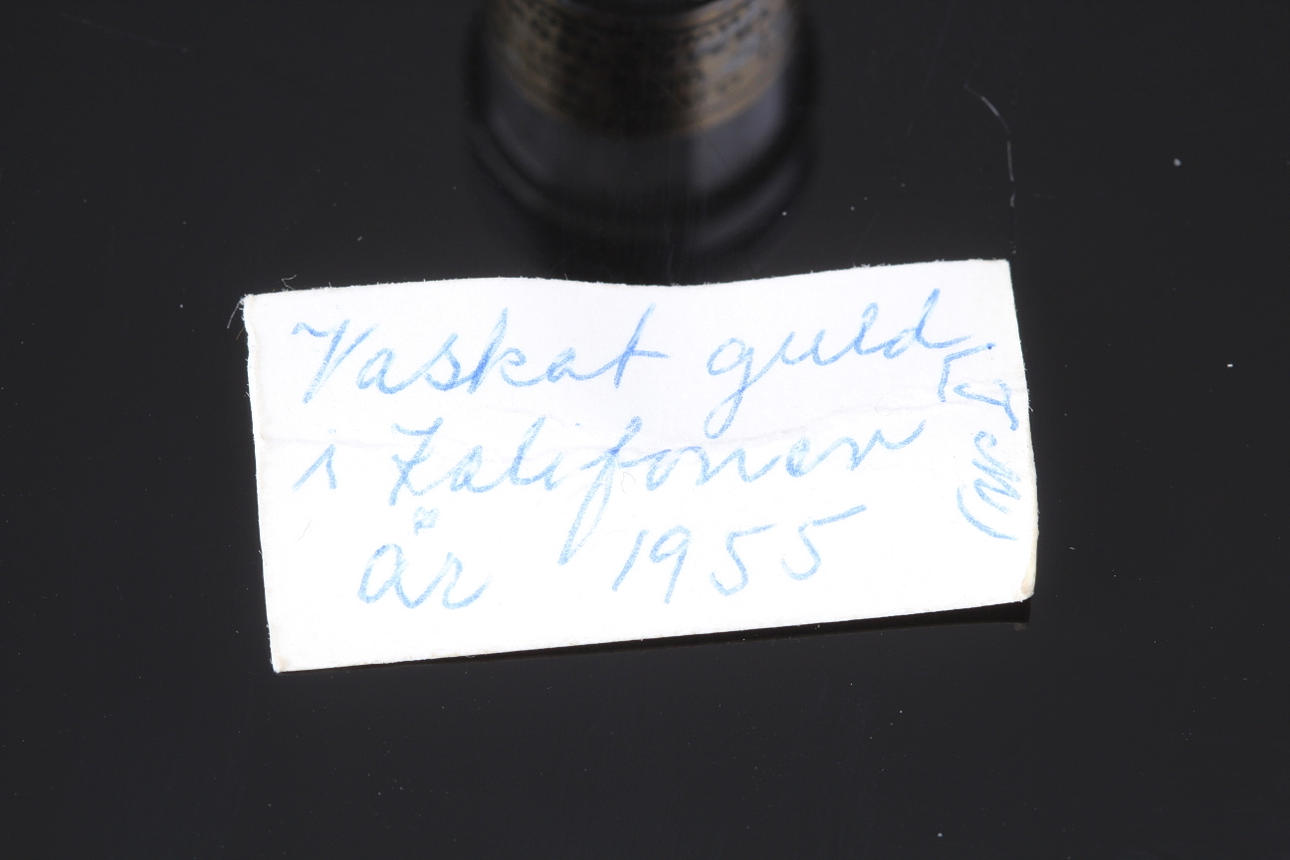 Vaskat guld
i Kalifonien
år 1955